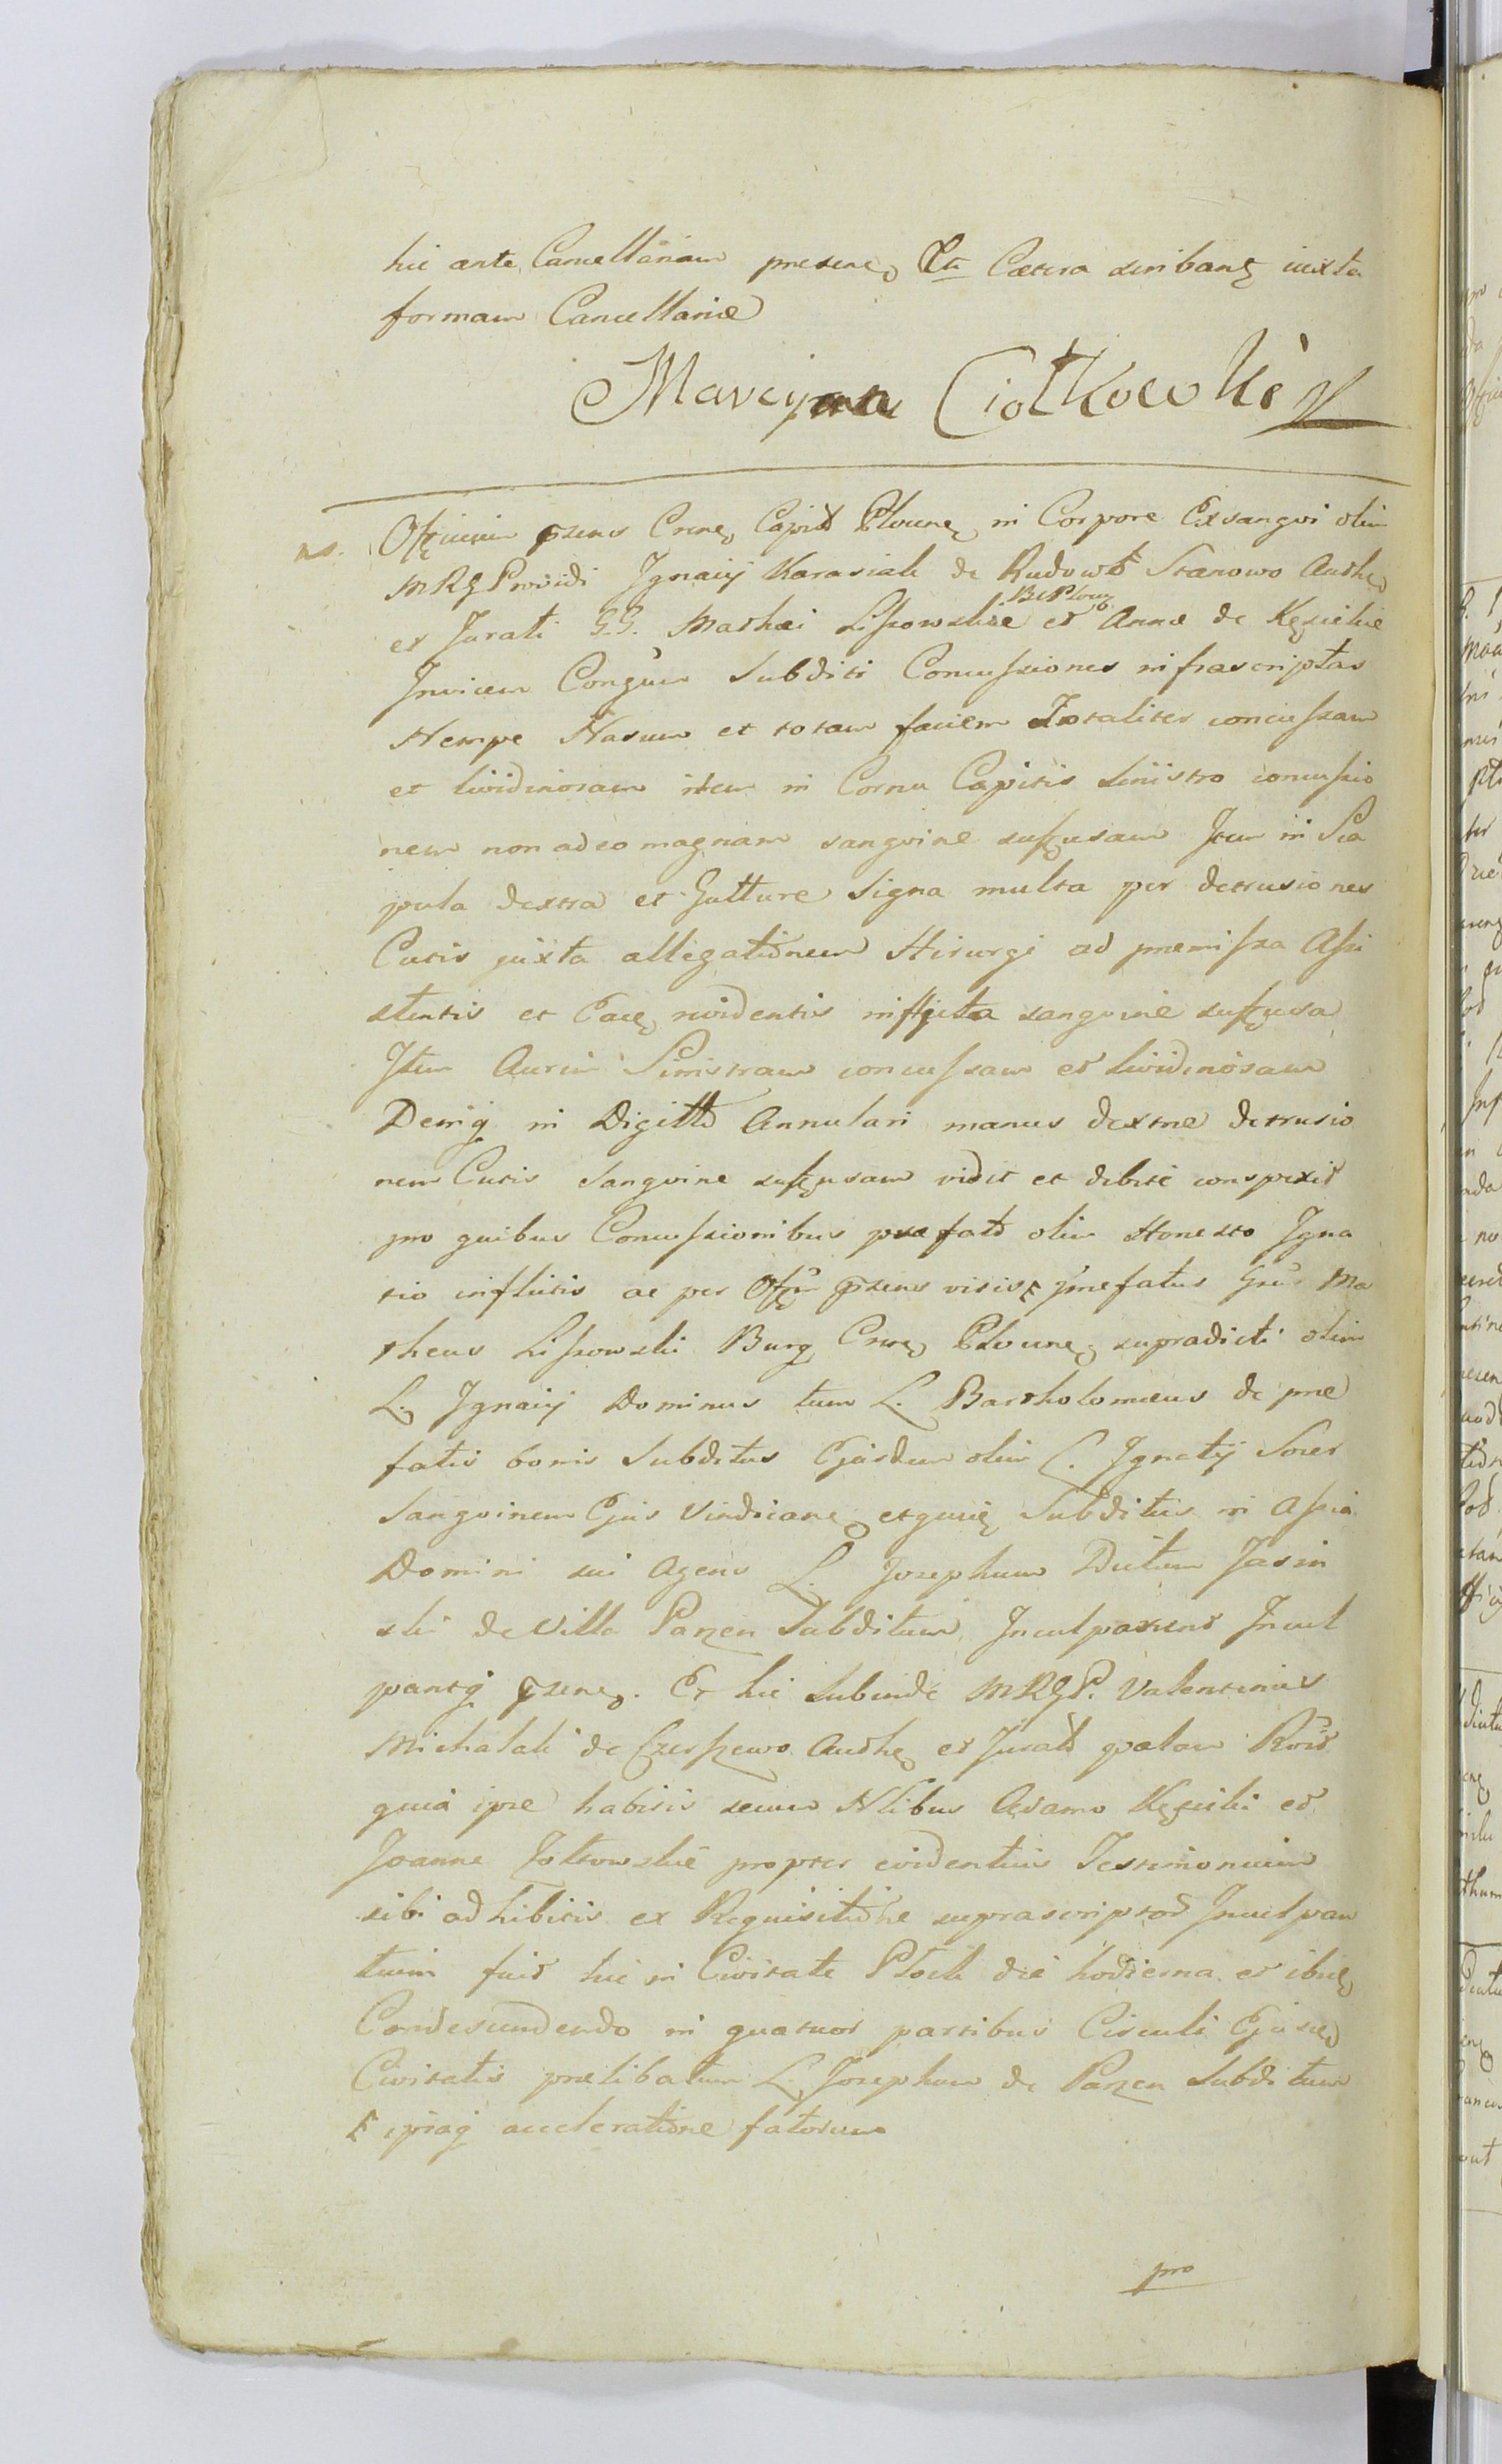 hic ante Cancellariam presenę Ettr Cætera scribanę iuxta
formam Cancellariæ
Marcyan Ciołkowski
ns. Officium pzens Crrne Capit Plocune in Corpore Exsangvi olim
MRG Providi Ignacij Karasiak de Rudowo Stanowo Authę
et Jurati G.G. Mathæi Lissowskie et Annæ de Kęsickie
BcPlocę
Invicem Congum Subditi Concussiones infrascriptas
Nempe Nasum et totam faciem Totaliter concussam
et lividinosam item in Cornu Capitis Sinistro concussio
nem non adeo magnam sangvine suffusam Item in Sca
pula dextra et Gutture Signa multa per detrusiones
Cutis juxta allegationem Hirurgi ad præmissa Assi
stentis et Eacę ridentis inflicta sangvine suffusa
Item Aurim Sinistram concussam et lividinosam
Deniq in Digitto Annulari manus dextræ detrusio
nem Cutis Sangvine suffusam vidit et debite conspexit
pro quibus Concussionibus præfato olim Honesto Igna
tio inflictis ac per Offm pzens visis præfatus Grus Ma
theus Lissowski Burg Crrę Plocunę supradicti olim
L. Ignacij Dominus tum L. Bartholomæus de præ
fatis bonis Subditus Ejusdem olim L. Ignatij Socer
Sangvinem Ejus Vindicanę etquię Subditus in Assia
Domini sui Agens L. Josephum Dictum Jasin
ski de Villa Parzen Subditum Inculparunt Incul
pantq pzenę. Et hic Subinde MRGP. Valentinus
Michalak de Czerszewo Authę et Jurato palam Rvit
quia ipse habitis secum Nlibus Adamo Kęsicki et
Joanne Jotkowskie propter evidentius Testimonium
sibi adhibitis ex Requisitione suprascriptor Inculpan
tium fuit hic in Civitate Plock die hodierna et ibię
Condescendendo in quatuor partibus Circuli Ejusdę
Civitatis prælibatum L. Josephum de Parzen Subditum
ipsiaq acceleratione fatorum
pro